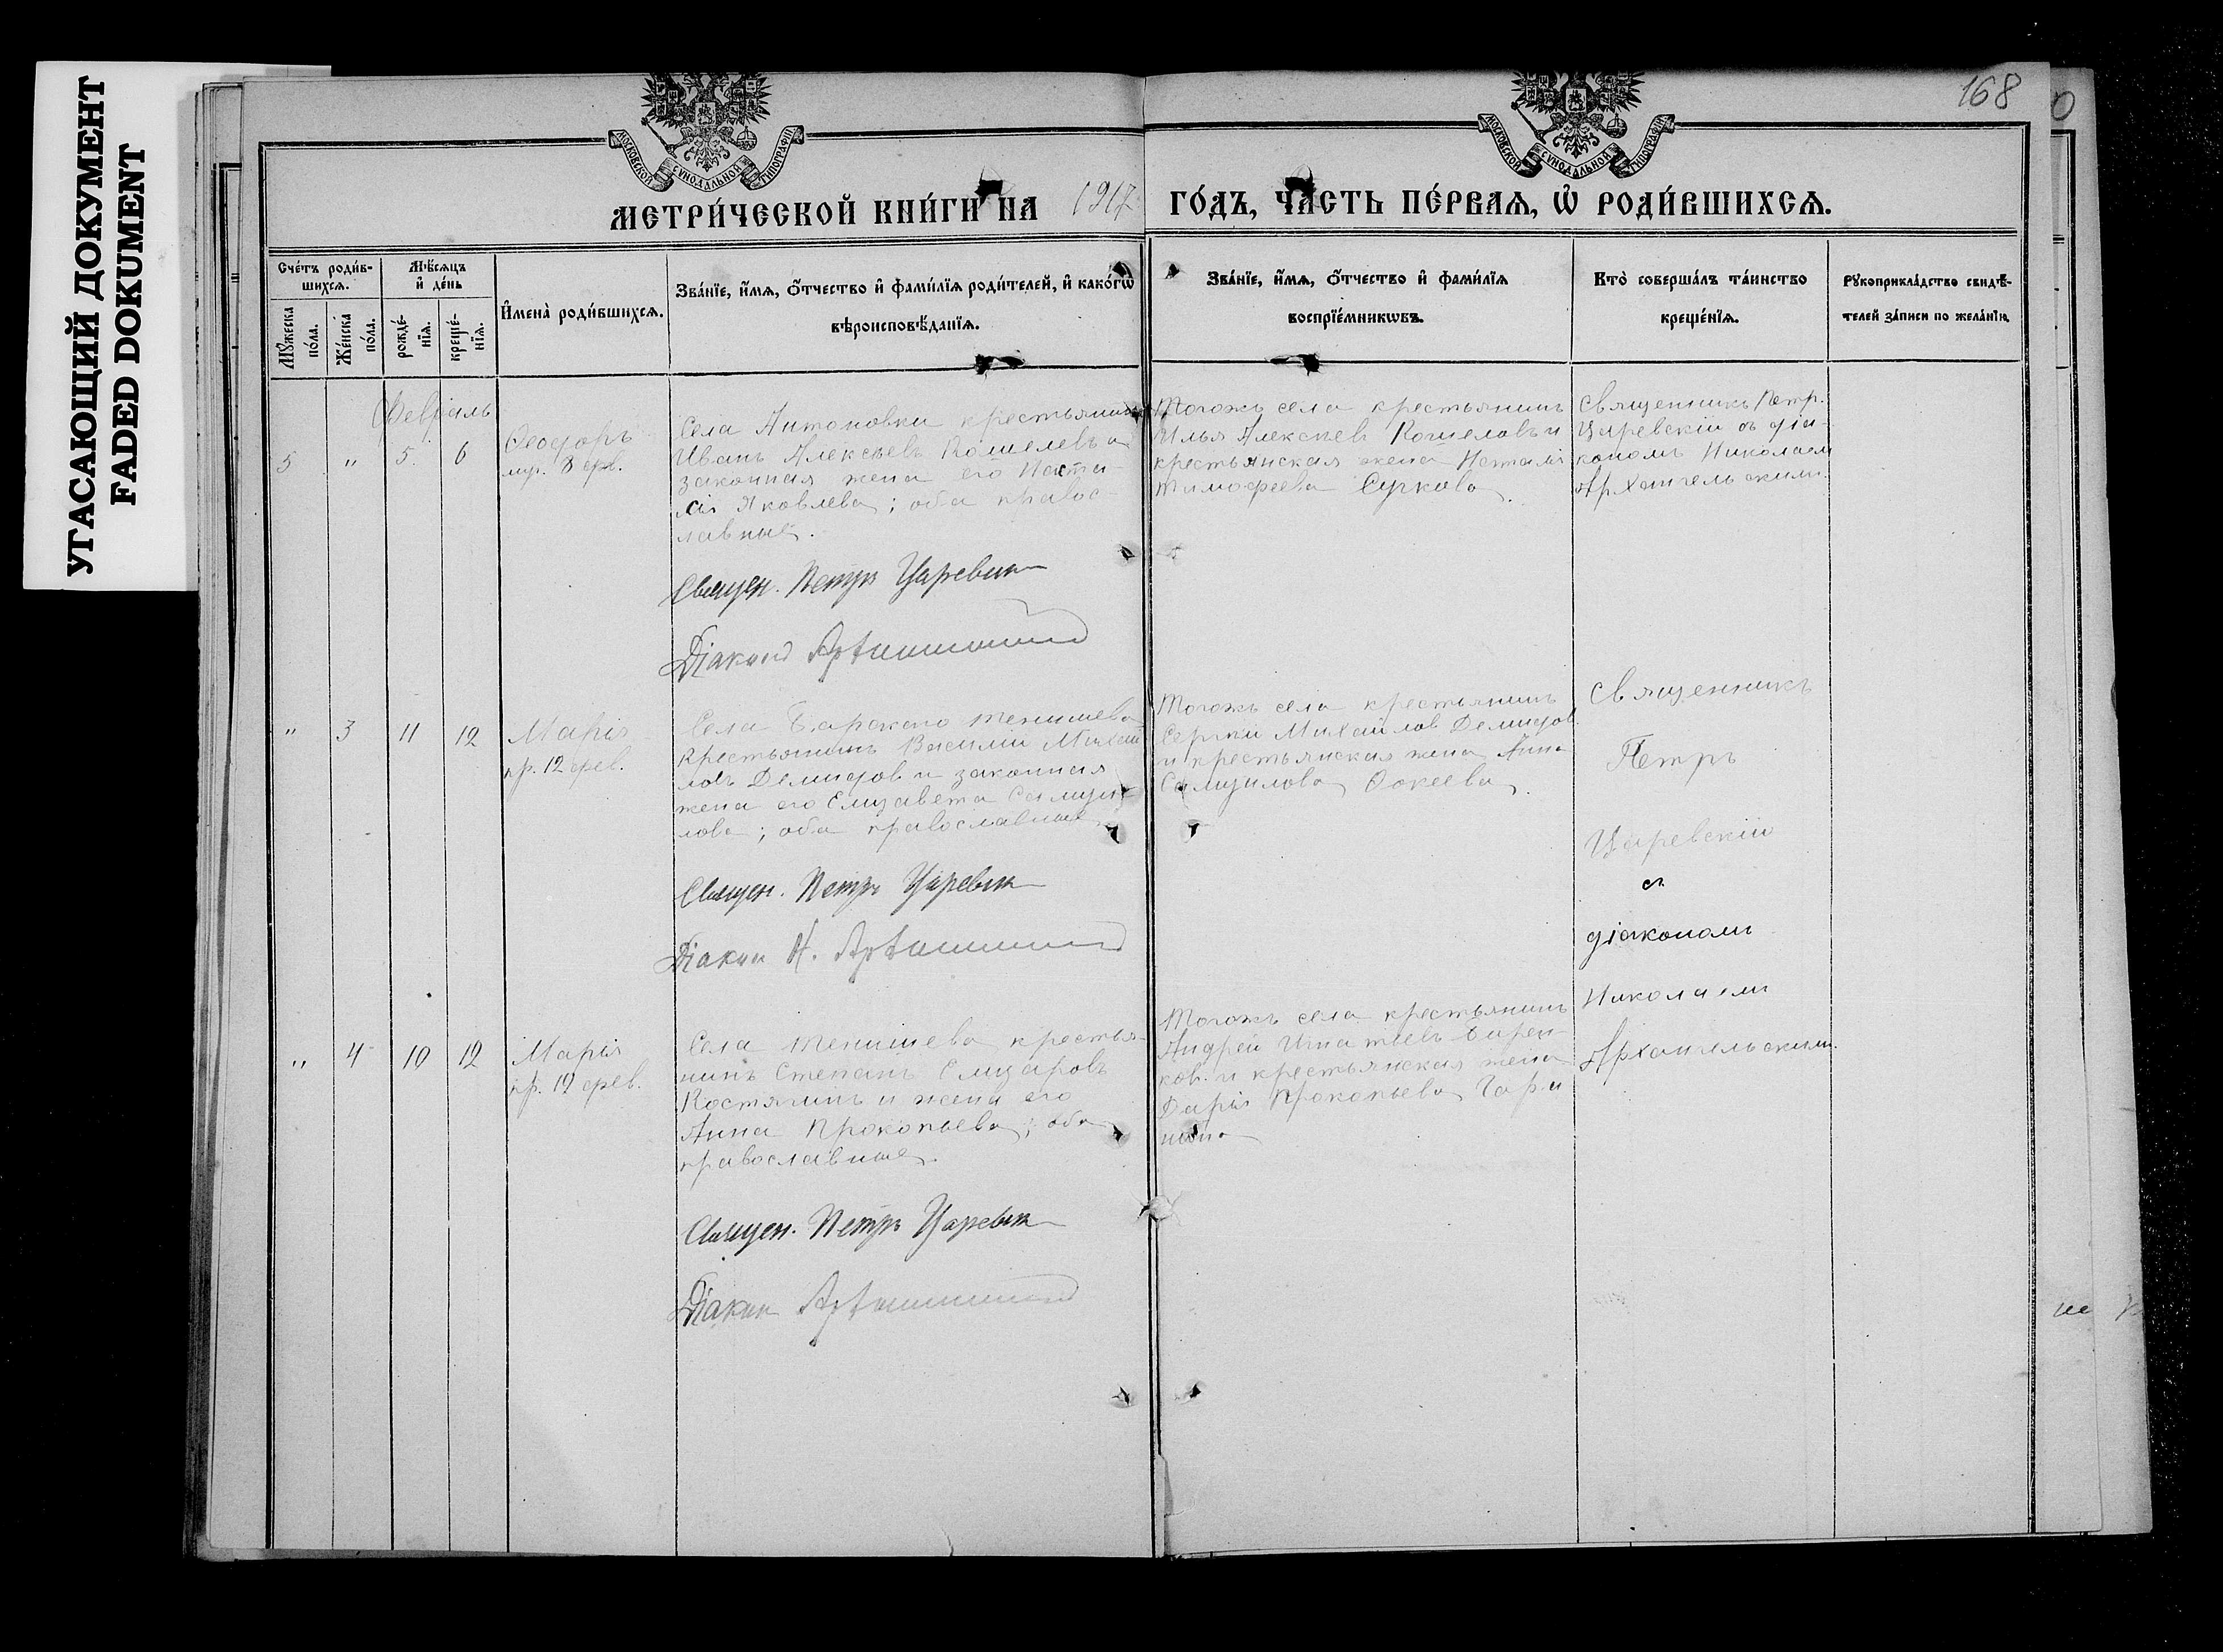 УГАСАЮЩИЙ ДОКУМЕНТ
FADED DOKUMENT
168
МОСКОВСКОЙ СУНОДАЛЬНОЙ ТИПОГРАФІИ
МОСКОВСКОЙ СУНОДАЛЬНОЙ ТИПОГРАФІИ
МЕТРИ́ЧЕСКОЙ КНИ́ГИ НА 1917 ГО́ДЪ, ЧА́СТЬ ПЕ́РВАѦ, Ѡ҆ РОДИ́ВШИХСѦ.
Сче́тъ роди́в-
шихсѧ.
Мꙋ́жеска
по́ла.
Же́нска
по́ла.
Мѣ́сѧцъ
и҆ де́нь
рожде́-
нїѧ.
креще́-
нїѧ.
И҆мена̀ роди́вшихсѧ.
Зва́нїе, и҆́мѧ, ѻ҆́тчество и҆ фами́лїѧ роди́телей, и҆ како́гѡ
вѣроисповѣ́данїѧ.
Зва́нїе, и҆́мѧ, ѻ҆́тчество и҆ фами́лїѧ
воспрїе́мникѡвъ.
Кто̀ соверша́лъ та́инство
креще́нїѧ.
Рꙋкоприкла́дство свидѣ́-
телей за́писи по жела́нїю.
Февраль
5 " 5. 6
Ѳеодоръ
му. 8 фев.
Села Антоновки крестьянинъ
Иванъ Алексѣевъ Кошелевъ и
законная жена его Наста-
сія Яковлева; оба правос-
лавные.
Священ. Петръ Царевск
Діаконъ Архангельскій
Тогожъ села крестьянинъ
Илья Алексѣевъ Кошелевъ и
крестьянская жена Наталія
Тимофеева Суркова.
Священникъ Петръ
Царевскій съ діа-
кономъ Николаемъ
Архангельскимъ.
" 3 11 12
Марія
пр. 12 фев.
Села Барскаго Тенишева
крестьянинъ Василій Михай-
ловъ Демидовъ и законная
жена его Елизавета Самуи-
лова; оба православные.
Священ. Петръ Царевск
Діакон Н. Архангельскій
Тогожъ села крестьянинъ
Сергѣй Михайлов Демидов
и крестьянская жена Анна
Самуилова Оскеева.
Священникъ
Петръ
Царевскій
съ
діакономъ
Николаемъ
Архангельскимъ.
" 4 10 12
Марія
пр. 12 фев.
Села Тенишева крестья-
нинъ Степанъ Елизаровъ
Костягинъ и жена его
Анна Прокопьева; оба
православные.
Священ. Петръ Царевск
Діакон Архангельскій
Тогожъ села крестьянинъ
Андрей Игнатіевъ
и крестьянская жена
Дарія Прокопьева